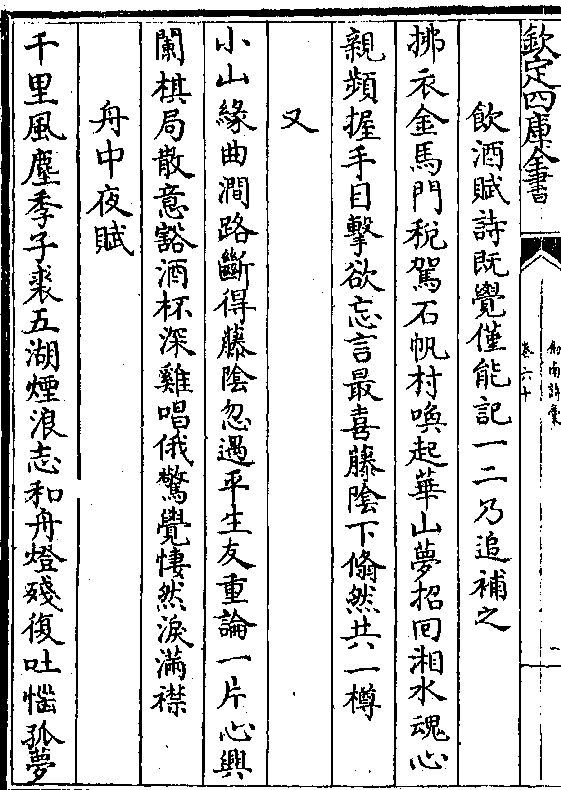 欽定四庫全書
劍南詩稾
卷六十
飲酒賦詩既覺僅能記一二乃追補之
拂衣金馬門稅駕石帆村喚起華山夢招回湘水魂心
親頻握手目擊欲忘言最喜藤陰下翛然共一樽
又
小山緣曲澗路斷得藤陰忽遇平生友重論一片心興
闌棋局散意豁酒杯深雞唱俄驚覺悽然淚滿襟
舟中夜賦
千里風塵季子裘五湖煙浪志和舟燈殘復吐惱孤夢